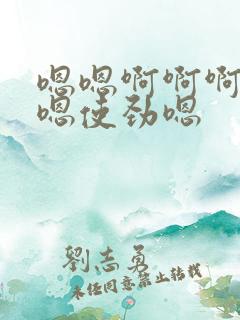 嗯嗯啊啊啊
嗯使劲嗯
劉志勇
未经同意禁止转载